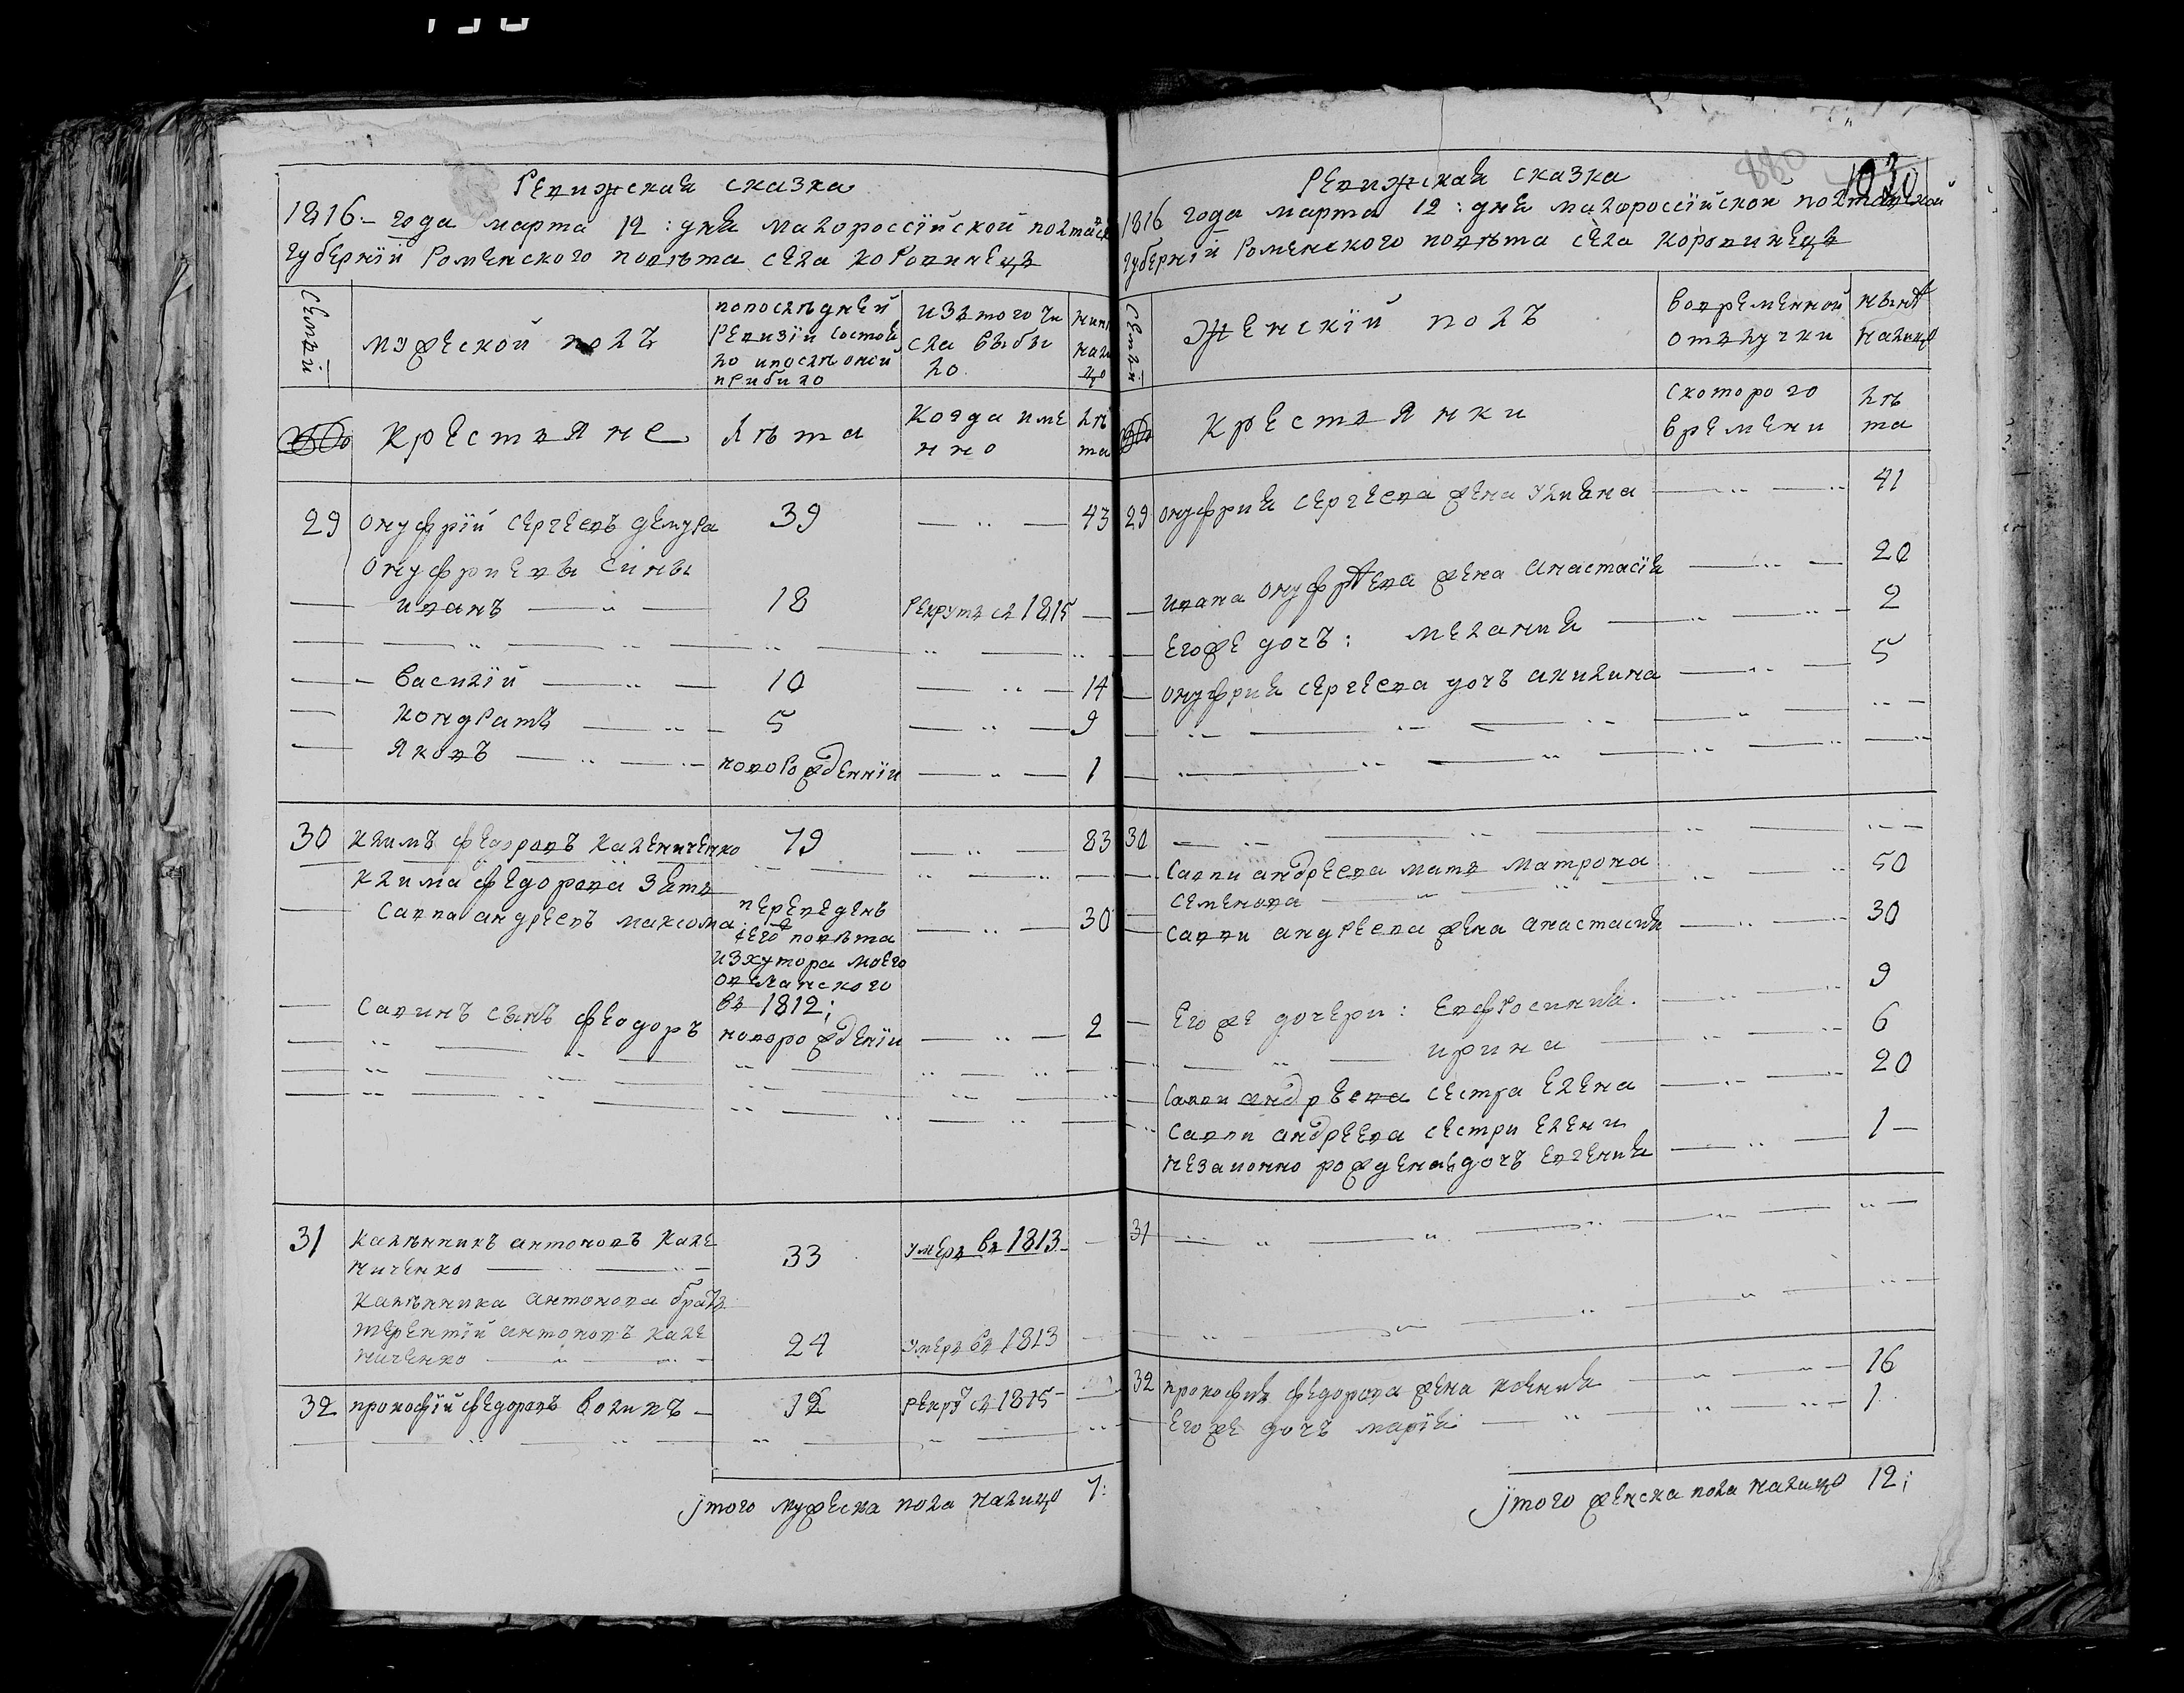 Ревижская сказка
1816 года марта 12: дня малороссїйской полтавск
губернїи Роменского повѣта села Коровинецъ
Семьи
мужеской полъ
попослѣдней
Ревизїи состоя
ло ипослѣ оной
прибыло
изъ того чи
сла выбы
ло
нынѣ
нали
цо
Крестьяне
Лѣта
Когда име
нно
лѣ
та
29 Онуфрїй Сергеевъ Демура 39 43
Онуфриевы сины
иванъ 18 рекрутъ съ 1815
Василїй 10 14
Кондратъ 5 9
Яковъ новорожденнїи 1
30 Климъ Феодоровъ Калениченко 79 83
Клима Федорова зять
Савва андреевъ максома 30
переведенъ
сего повѣта
изхутора моего
въ 1812;
Савинъ сынъ Феодоръ новорожденїи 2
31 Калѣнникъ антоновъ Кале
ниченко 33 умеръ въ 1813
Калѣнника антонова братъ
Терентїй антоновъ Кале
ниченко 24 умеръ въ 1813
32 прокофїй Федоровъ Воликъ 12 рекру съ 1815
їтого мужеска пола налицо 7:
880
1030
Ревижская сказка
1816 года марта 12: дня малороссїйской полтавской
губернїи Роменского повѣта села Коровинецъ
Семьи
Женскїй полъ
вовременной
отлучки
нынѣ
налицо
Крестьянки
скоторого
времени
лѣ
та
29 Онуфрия Сергеева жена Улияна 41
ивана Онуфрѣева жена Анастасїя 20
Егоже дочъ: Мелания 2
Онуфрия Сергеева дочъ акилина 5
30
Савви андреева мать Матрона 50
Семенова
Савви андреева жена анастасия 30
Егоже дочери: Евфросиния 9
ирина 6
Савви андрѣева сестра Елена 20
Савви андреева сестри Елени
незаконно рожденая дочъ Евгения 1
31
32 прокофия Федорова жена Ксения 16
Егоже дочъ марїя 1
їтого женска пола налицо 12;